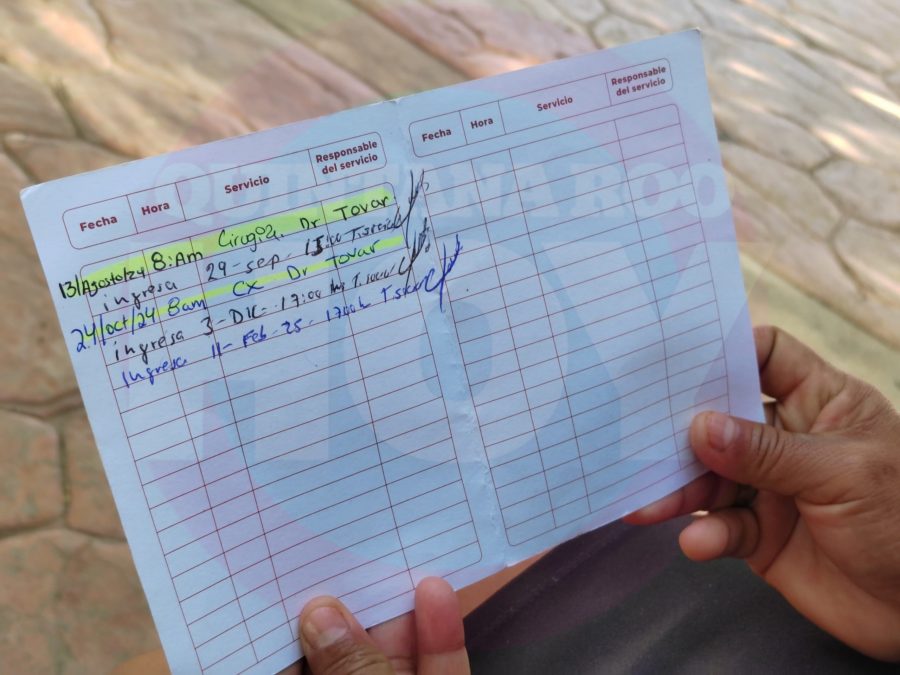 Fecha Hora Servicio Responsable del servicio
13/Agosto/24 8:Am Cirugía Dr Tovar
ingresa 29-sep- 15:00
24/oct/24 8am CX Dr Tovar
ingresa 3-Dic- 17:00 hrs
Ingresa 11-Feb-25-
Fecha Hora Servicio Responsable del servicio
QUINTANA ROO
HOY